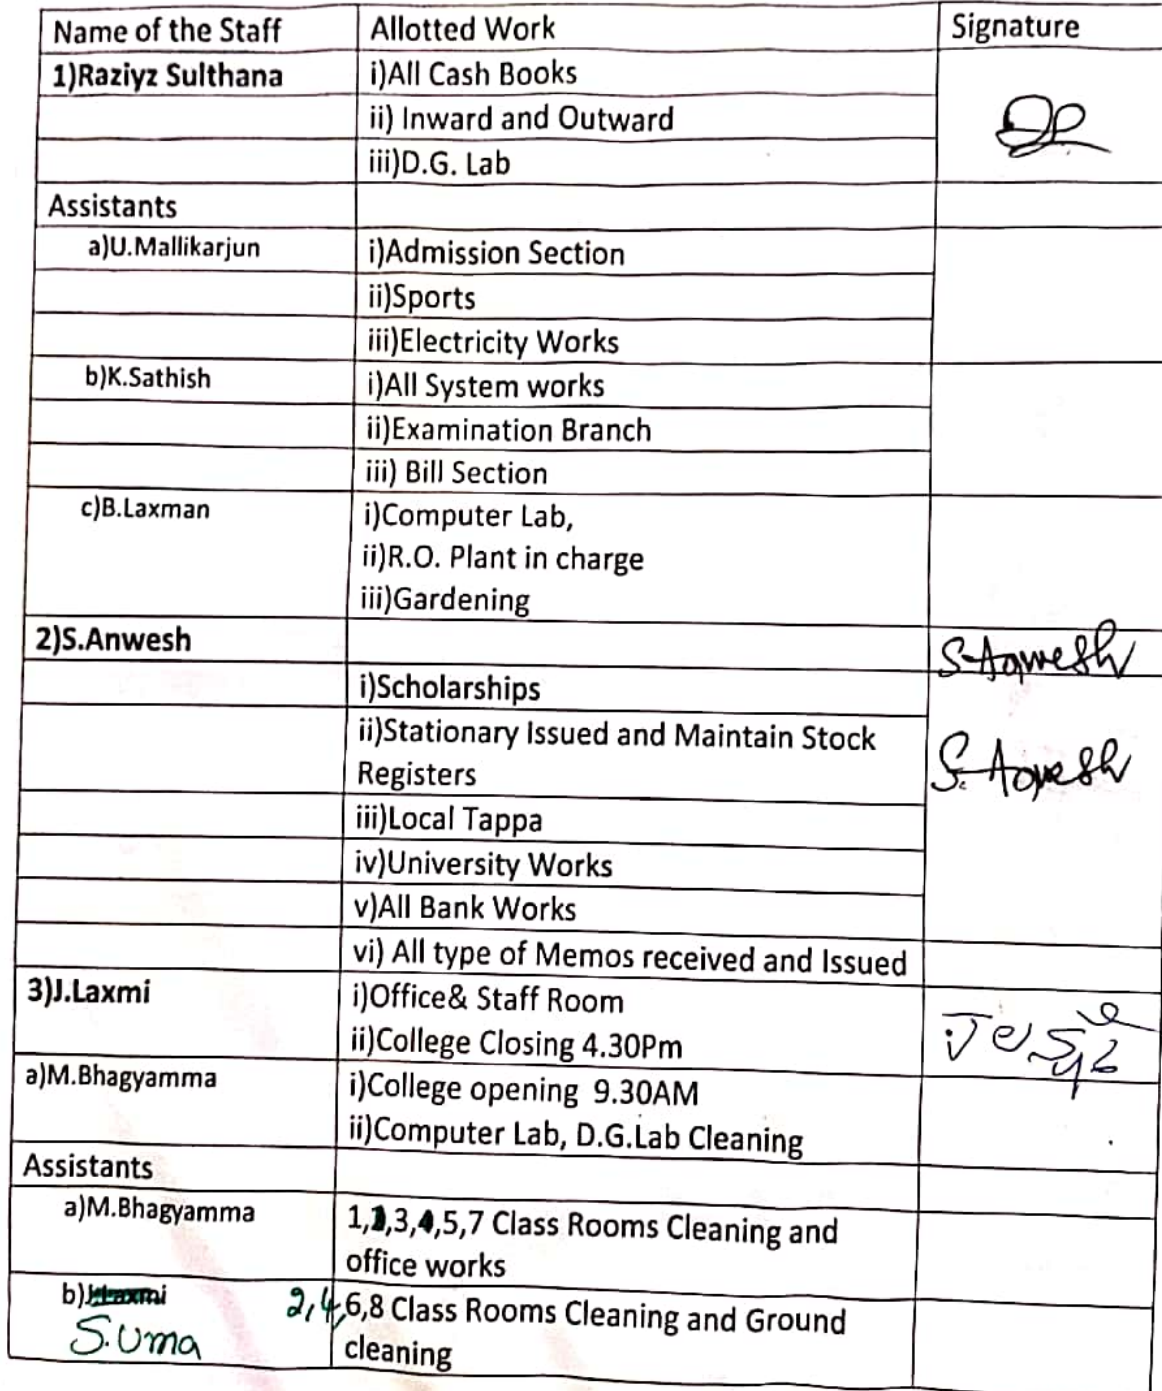 Name of the Staff Allotted Work Signature
1)Raziyz Sulthana i)All Cash Books
ii) Inward and Outward
iii)D.G. Lab
Assistants
a)U.Mallikarjun i)Admission Section
ii)Sports
iii)Electricity Works
b)K.Sathish i)All System works
ii)Examination Branch
iii) Bill Section
c)B.Laxman i)Computer Lab,
ii)R.O. Plant in charge
iii)Gardening
2)S.Anwesh S.Anwesh
i)Scholarships
ii)Stationary Issued and Maintain Stock
Registers S.Anwesh
iii)Local Tappa
iv)University Works
v)All Bank Works
vi) All type of Memos received and Issued
3)J.Laxmi i)Office& Staff Room
ii)College Closing 4.30Pm
a)M.Bhagyamma i)College opening 9.30AM
ii)Computer Lab, D.G.Lab Cleaning
Assistants
a)M.Bhagyamma 1,3,5,7 Class Rooms Cleaning and
office works
b)J.Laxmi 2,4,6,8 Class Rooms Cleaning and Ground
S.Uma cleaning